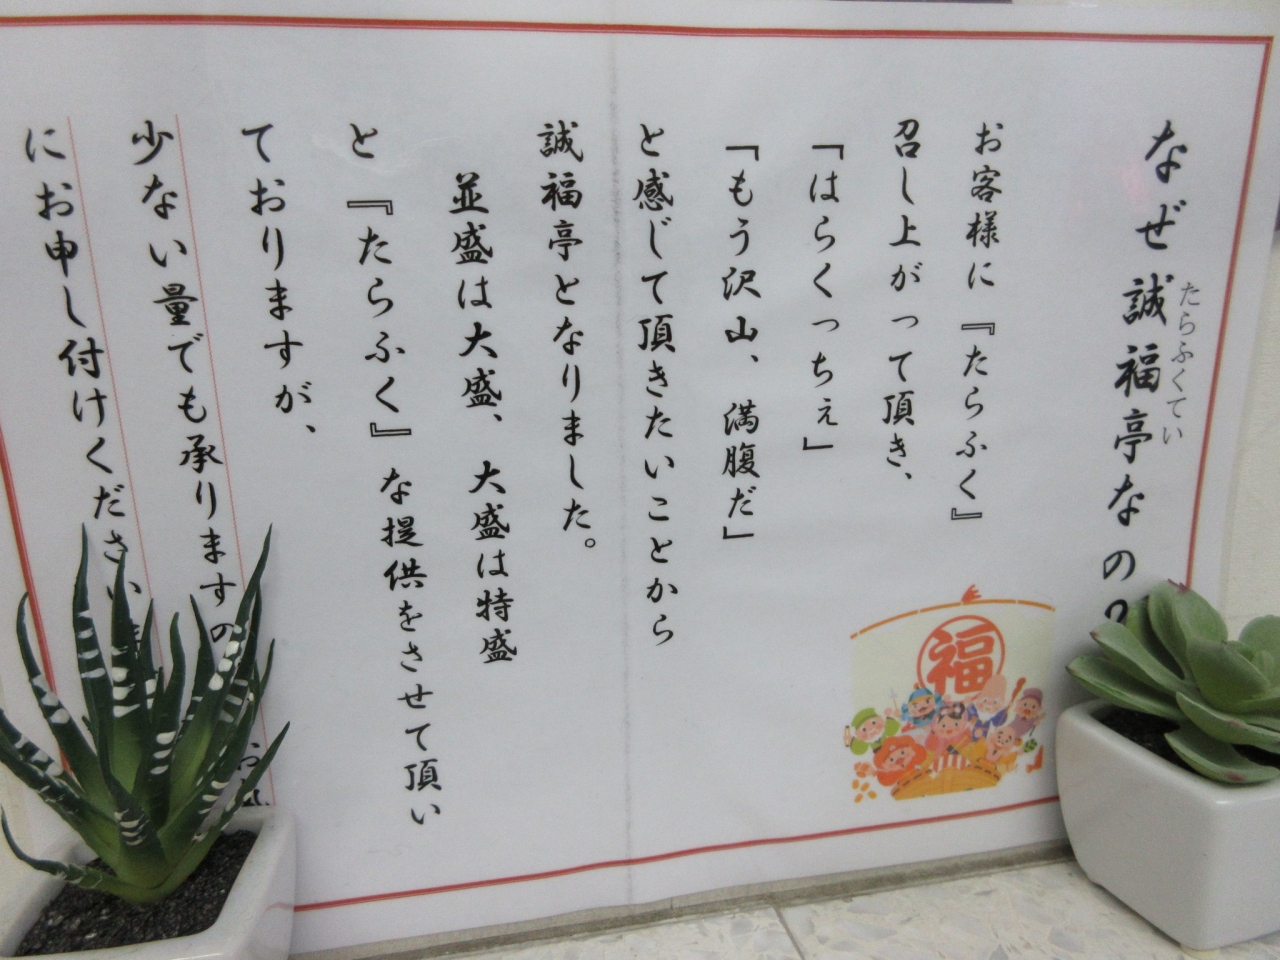 なぜ誠福亭なの?
たらふくてい
お客様に『たらふく』
召し上がって頂き、
「はらくっちぇ」
「もう沢山、満腹だ」
と感じて頂きたいことから
誠福亭となりました。
並盛は大盛、大盛は特盛
と『たらふく』な提供をさせて頂い
ておりますが、
少ない量でも承りますの
お気
にお申し付けください
福